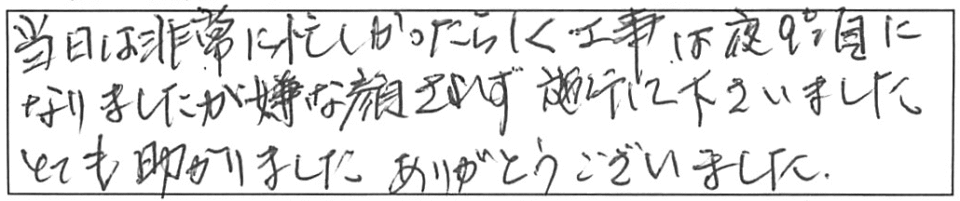 当日は非常に忙しかったらしく工事は夜9:00頃に
なりましたが嫌な顔されず施行して下さいました
とても助かりました ありがとうございました.